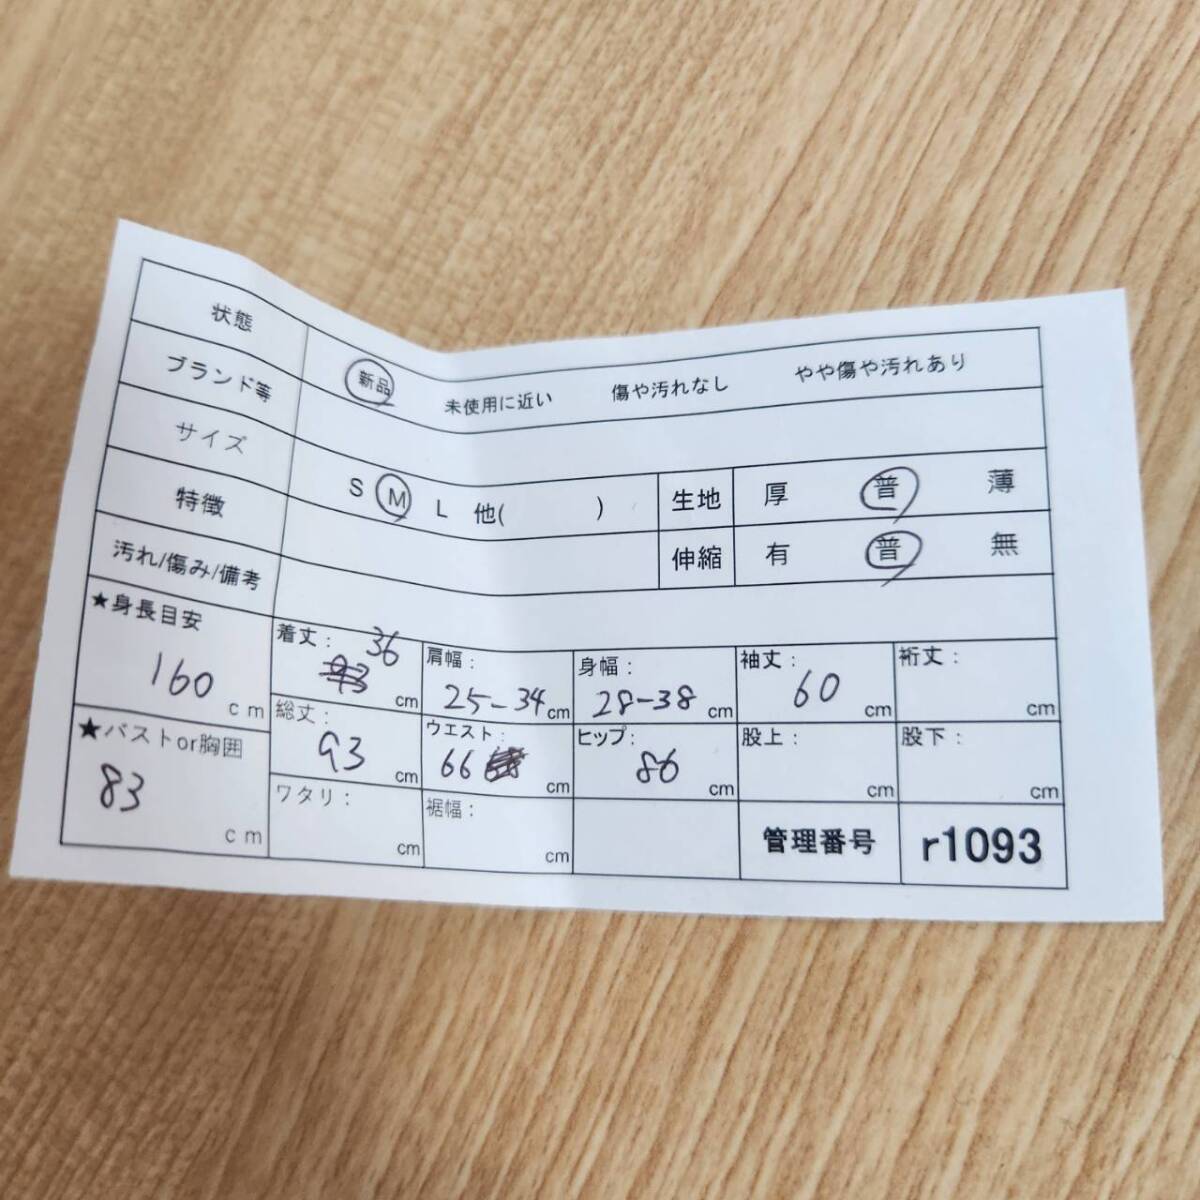 状態 新品 未使用に近い 傷や汚れなし やや傷や汚れあり
ブランド等
サイズ S M L 他( ) 生地 厚 普 薄
特徴 伸縮 有 普 無
汚れ/傷み/備考
★身長目安 着丈: 36 肩幅: 身幅: 袖丈: 裄丈:
160 cm 93 cm 25-34 cm 28-38 cm 60 cm cm
★バストor胸囲 総丈: ウエスト: ヒップ: 股上: 股下:
83 cm 93 cm 66 cm 86 cm cm cm
ワタリ: cm 裾幅: cm 管理番号 r1093